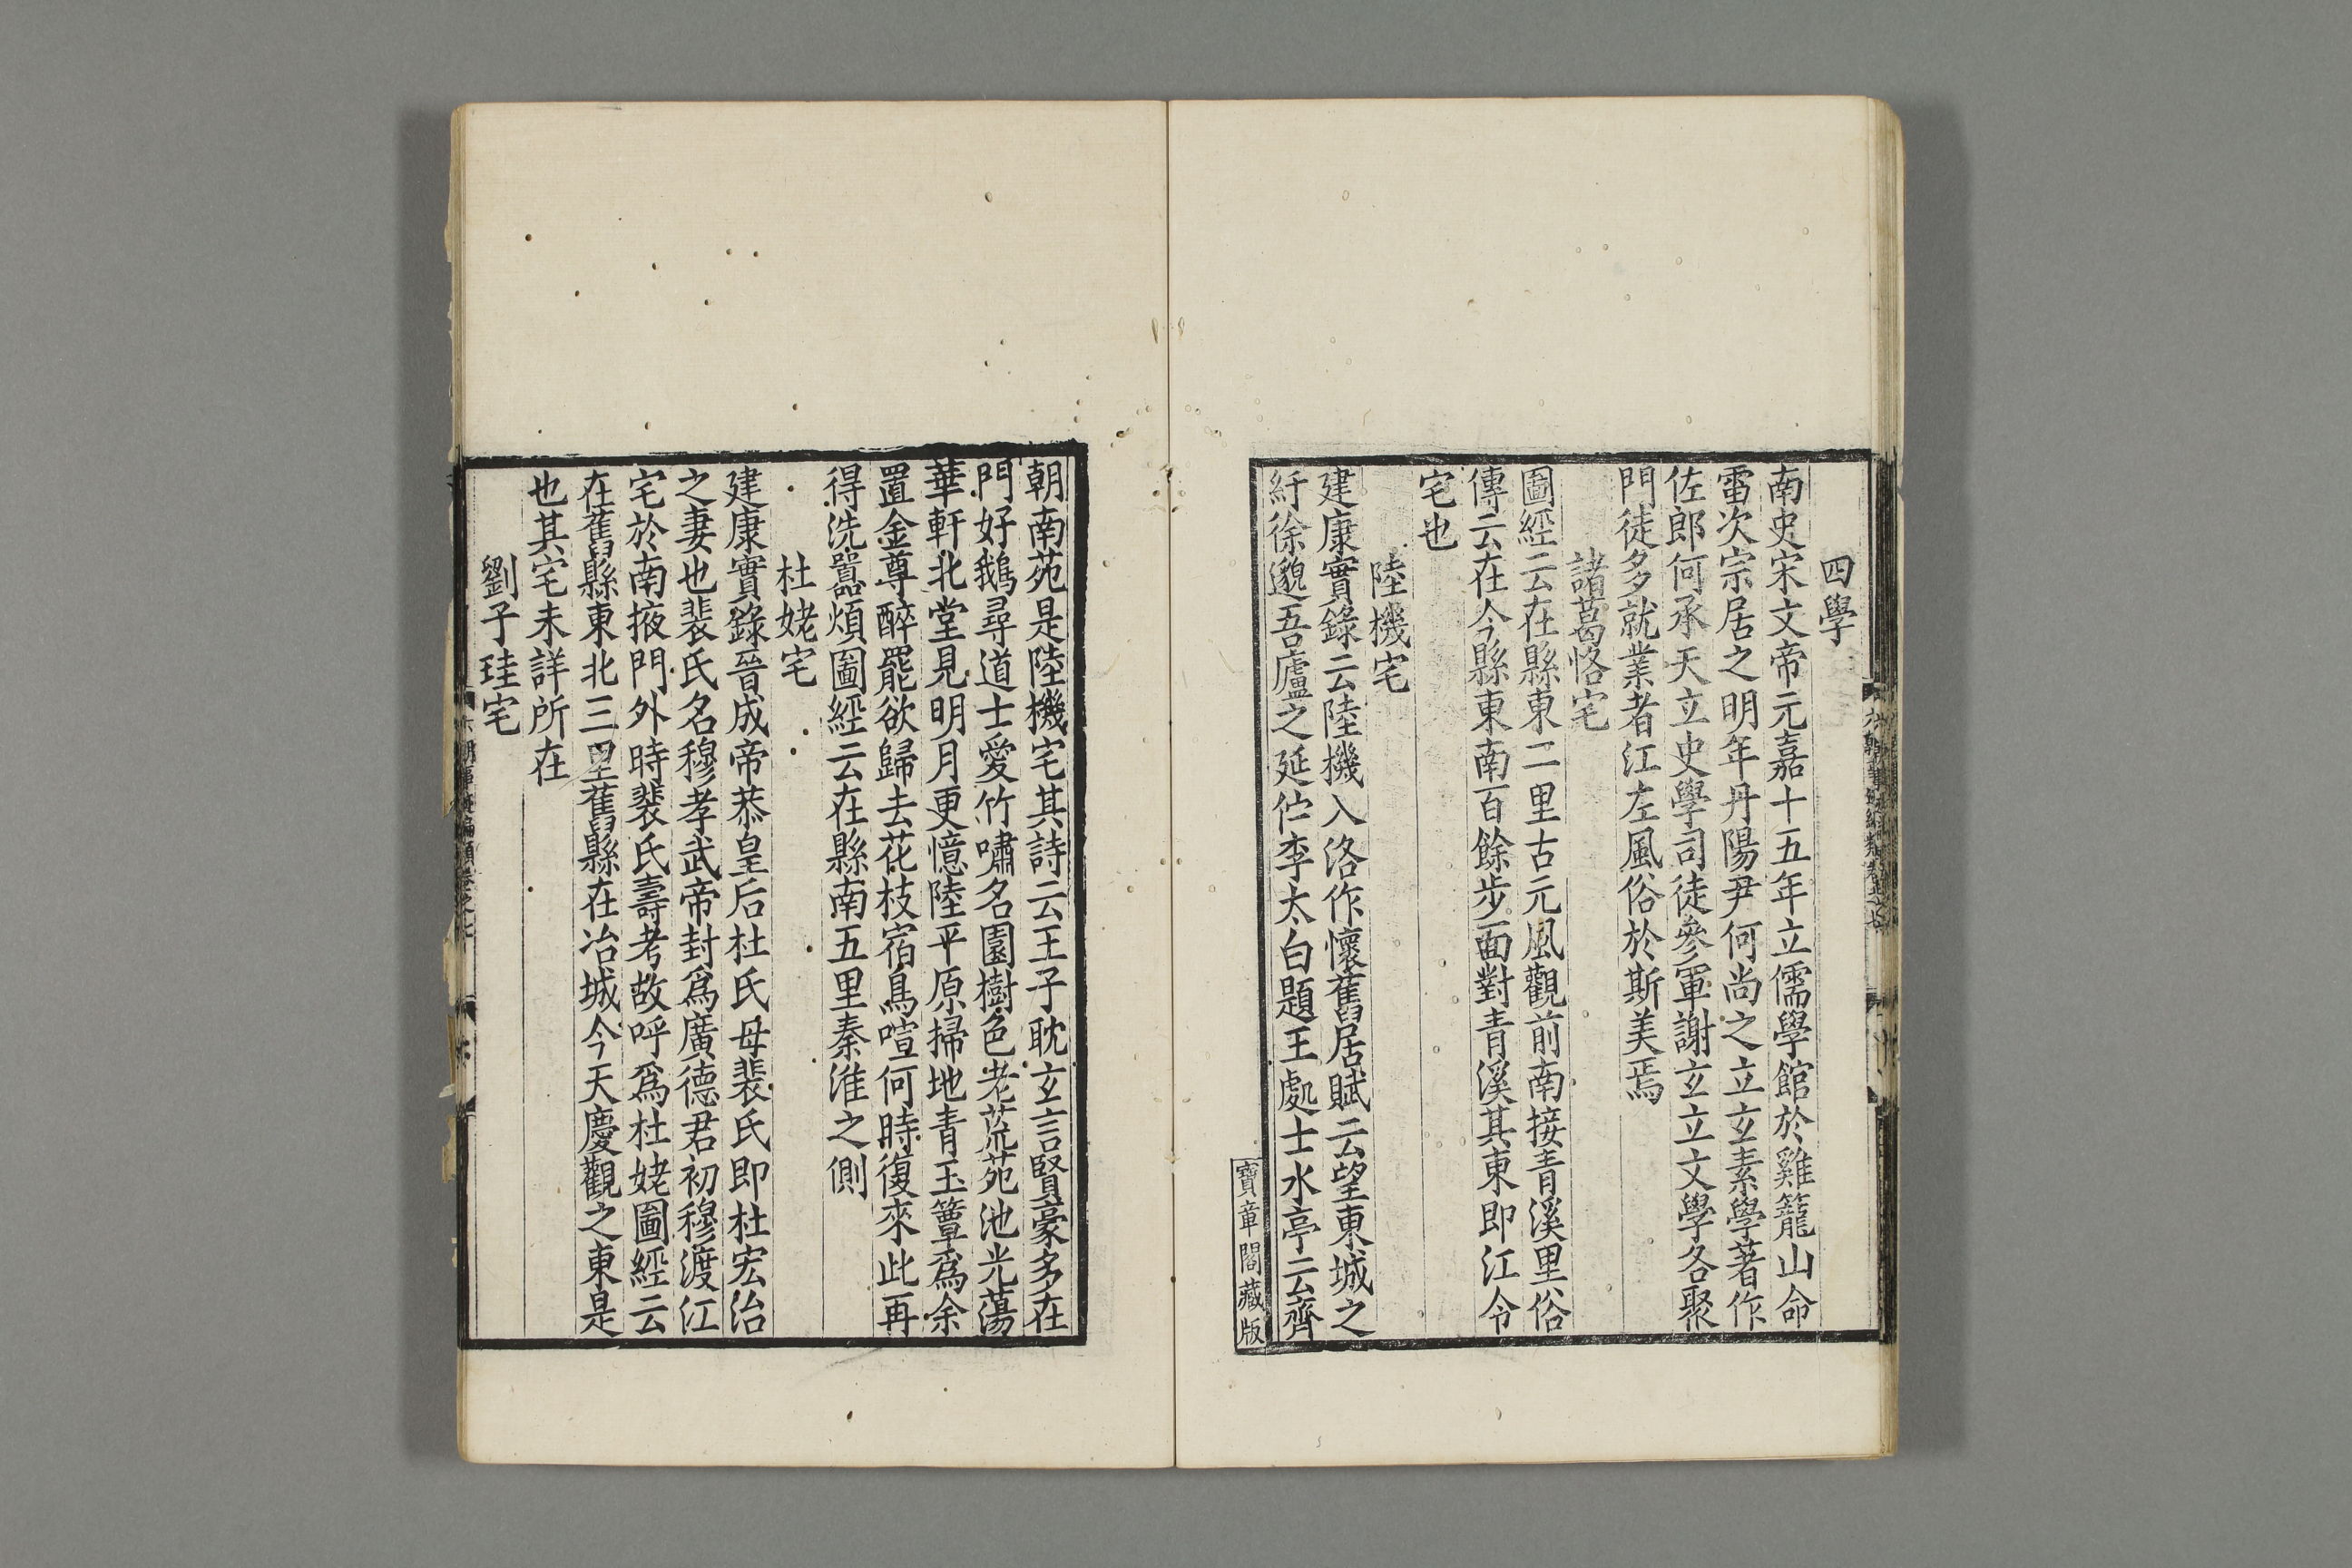 四學
南史宋文帝元嘉十五年立儒學館於雞籠山命
雷次宗居之明年丹陽尹何尚之立玄素學著作
佐郎何承天立史學司徒參軍謝玄立文學各聚
門徒多就業者江左風俗於斯美焉
諸葛恪宅
圖經云在縣東二里古元風觀前南接青溪里俗
傳云在今縣東南百餘步面對青溪其東即江令
宅也
陸機宅
建康實錄云陸機入洛作懷舊居賦云望東城之
紆徐邈吾廬之延伫李太白題王處士水亭云齊
寶章閣藏版
朝南苑是陸機宅其詩云王子耽玄言賢豪多在
門好鵝尋道士愛竹嘯名園樹色老荒苑池光蕩
華軒北堂見明月更憶陸平原掃地青玉簟爲余
置金尊醉罷欲歸去花枝宿鳥喧何時復來此再
得洗囂煩圖經云在縣南五里秦淮之側
杜姥宅
建康實錄晉成帝恭皇后杜氏母裴氏即杜宏治
之妻也裴氏名穆孝武帝封爲廣德君初穆渡江
宅於南掖門外時裴氏壽考故呼爲杜姥圖經云
在舊縣東北三里舊縣在冶城今天慶觀之東是
也其宅未詳所在
劉子珪宅